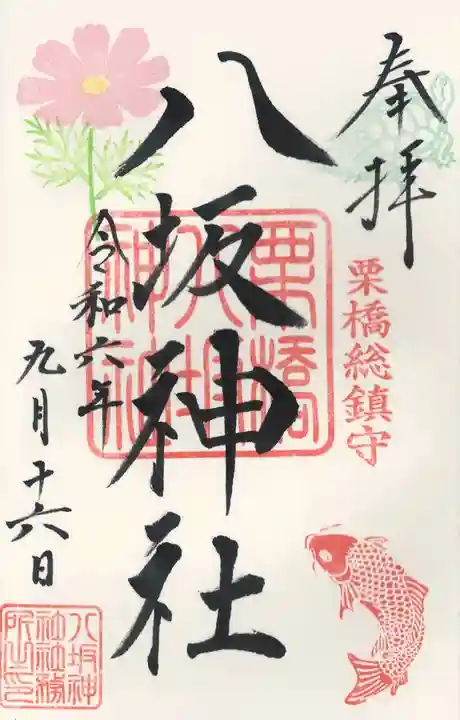 奉拝
栗橋総鎮守
八坂神社
栗橋八坂神社
令和六年
九月十六日
八坂神社社務所之印